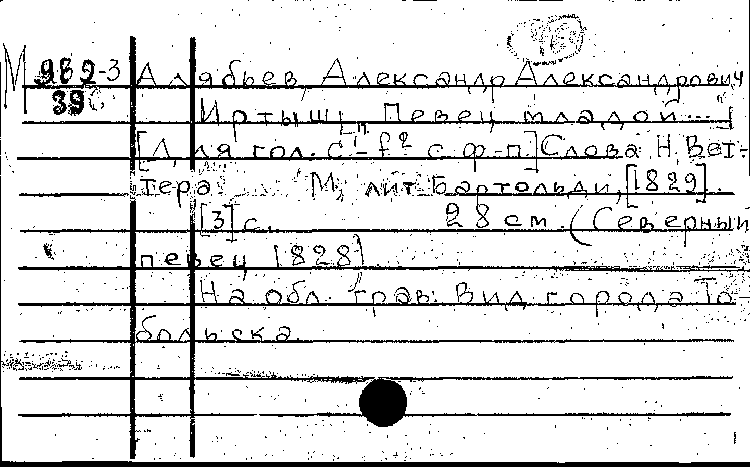 М 982-3 Алябьев, Александр Александрович
39 Иртыш[. "Певец младой..."]
[Для гол. c¹-f² с ф-п.] Слова Н. Вет-
тера М., лит. Бартольди, [1829].
[3] с. 28 см. (Северный
певец 1828)
На обл. грав: Вид города То-
больска.